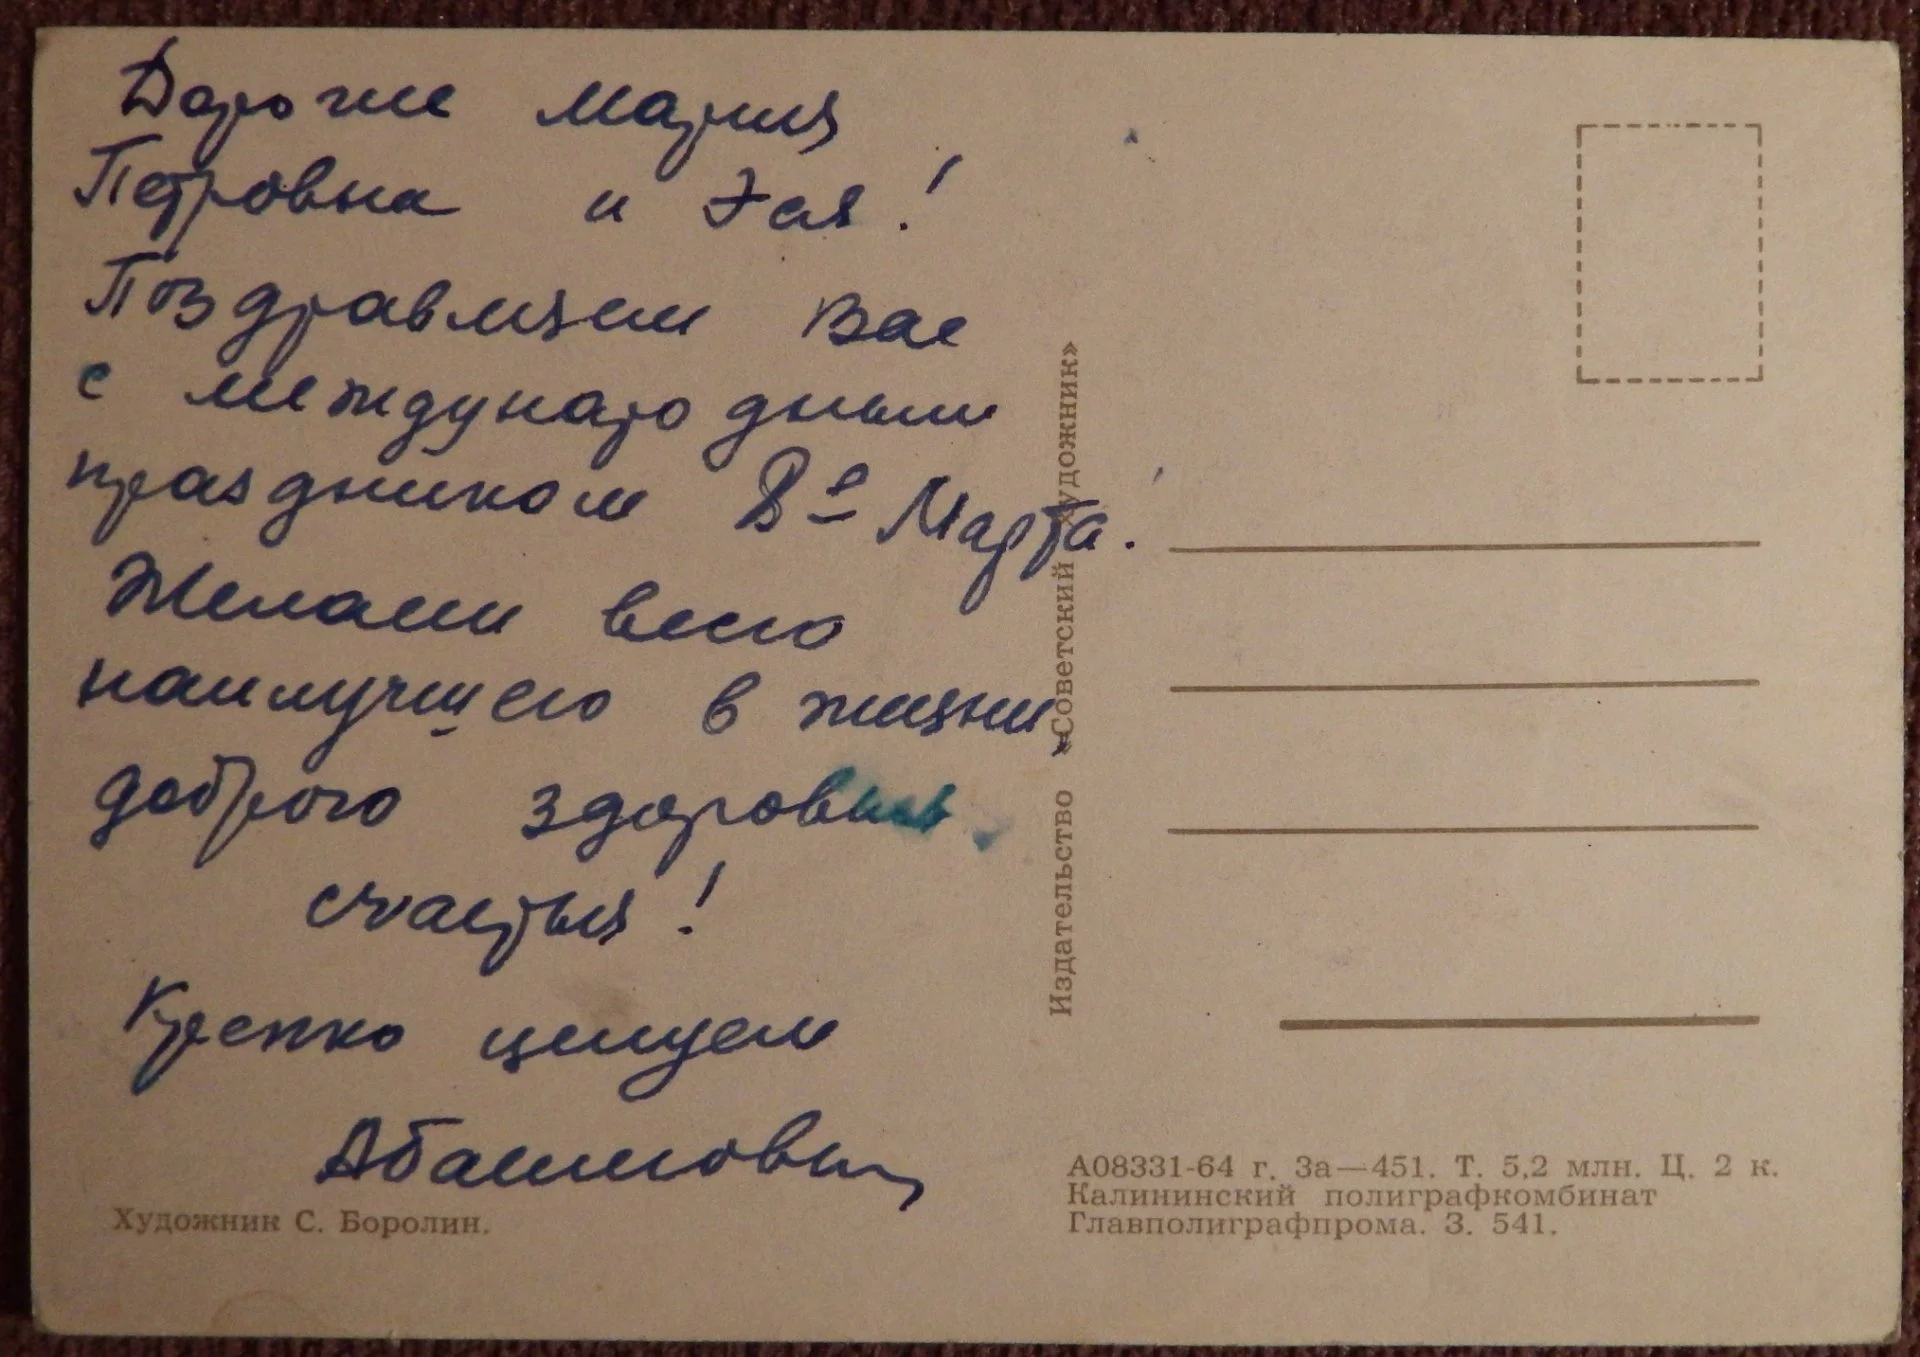 Дорогие Мария
Петровна и Зоя!
Поздравляем Вас
с международным
праздником 8е Марта.
Желаем всего
наилучшего в жизни
доброго здоровья,
счастья!
Крепко целуем
Художник С. Боролин.
Издательство «Советский художник»
А08331-64 г. За—451. Т. 5,2 млн. Ц. 2 к.
Калининский полиграфкомбинат
Главполиграфпрома. З. 541.